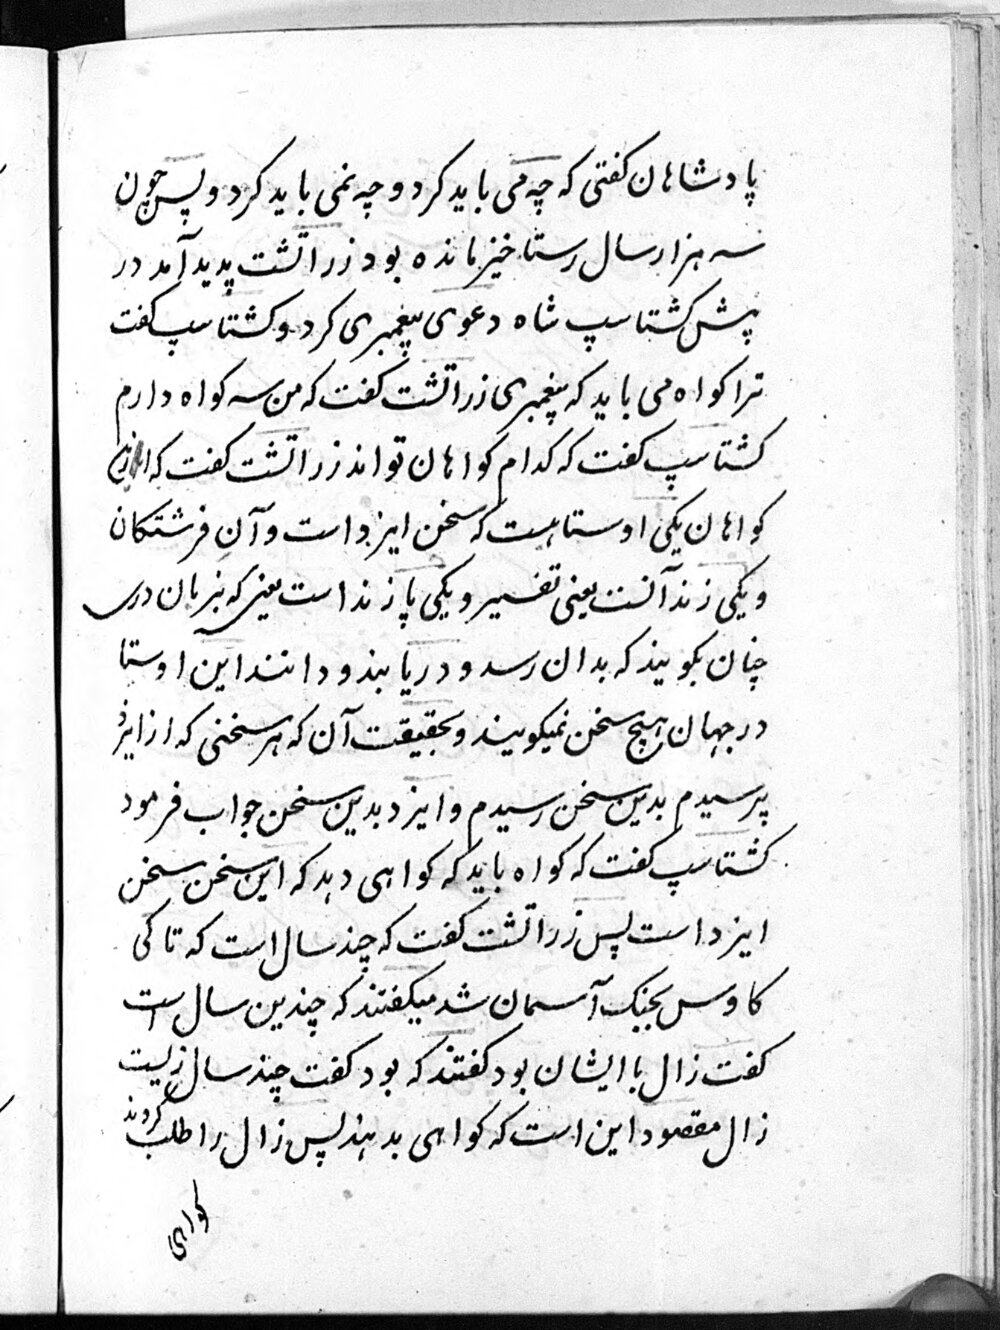 پادشاهان کفتی که چه می باید کرد و چه نمی باید کرد و پس چون
سه هزار سال رستاخیز مانده بود زراتشت پدید آمد در
پیش کشتاسپ شاه دعوی پیغمبری کرد و کشتاسپ کفت
ترا کواه می باید که پیغمبری زراتشت کفت که من سه کواه دارم
کشتاسپ کفت که کدام کواهان تواند زراتشت کفت که ازین
کواهان یکی اوستا هست که سخن ایزد است و آن فرشتکان
و یکی زند آنست یعنی تفسیر و یکی پازند است یعنی که بزبان دری
چنان بکویند که بدان رسد و دریابند و دانند این اوستا
در جهان هیچ سخن نمیکویند و بحقیقت آن که هر سخنی که از ایزد
پرسیدم بدین سخن رسیدم و ایزد بدین سخن جواب فرمود
کشتاسپ کفت که کواه باید که کواهی دهد که این سخن سخن
ایزد است پس زراتشت کفت که چند سال است که تا کی
کاوس بجنک آسمان شد میکفتند که چندین سال است
کفت زال با ایشان بود کفتند که بود کفت چند سال زیست
زال مقصود این است که کواهی بدهند پس زال را طلب کردند
کواهی